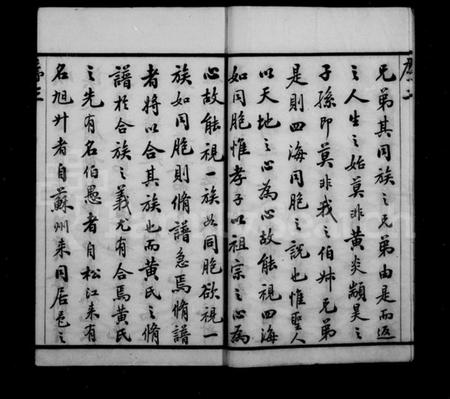 兄弟其同族之兄弟由是而返
之人生之始莫非黄炎顓昊之
子孫即莫非我之伯叔兄弟
是則四海同胞之說也惟聖人
以天地之心為心故能視四海
如同胞惟孝子以祖宗之心為
心故能視一族如同胞欲視一
族如同胞則脩譜急焉脩譜
者將以合其族也而黄氏之脩
譜於合族之義尤有合焉黄氏
之先有名伯愚者自松江来有
名旭升者自蘇州来同居邑之